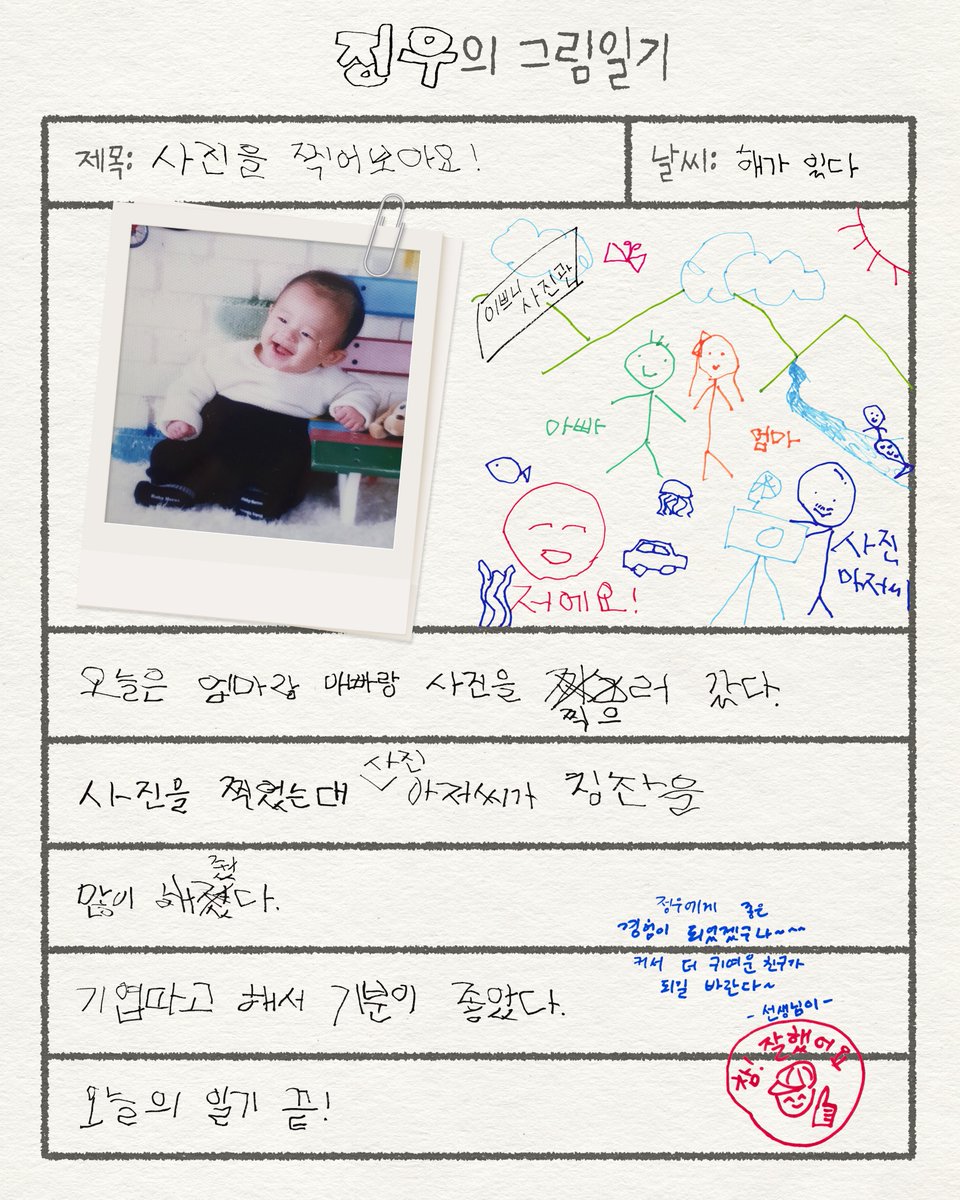 정우의 그림일기
제목: 사진을 찍어보아요!
날씨: 해가 있다
이쁘니 사진관
아빠
엄마
저에요!
사진
아저씨
오늘은 엄마랑 아빠랑 사진을 찍으러 갔다.
사진을 찍었는대 사진 아저씨가 칭찬을
많이 해줬다.
기엽따고 해서 기분이 좋았다.
오늘의 일기 끝!
정우에게 좋은
경험이 되었겠구나~~~
커서 더 귀여운 친구가
되길 바란다~
-선생님이-
참! 잘했어요